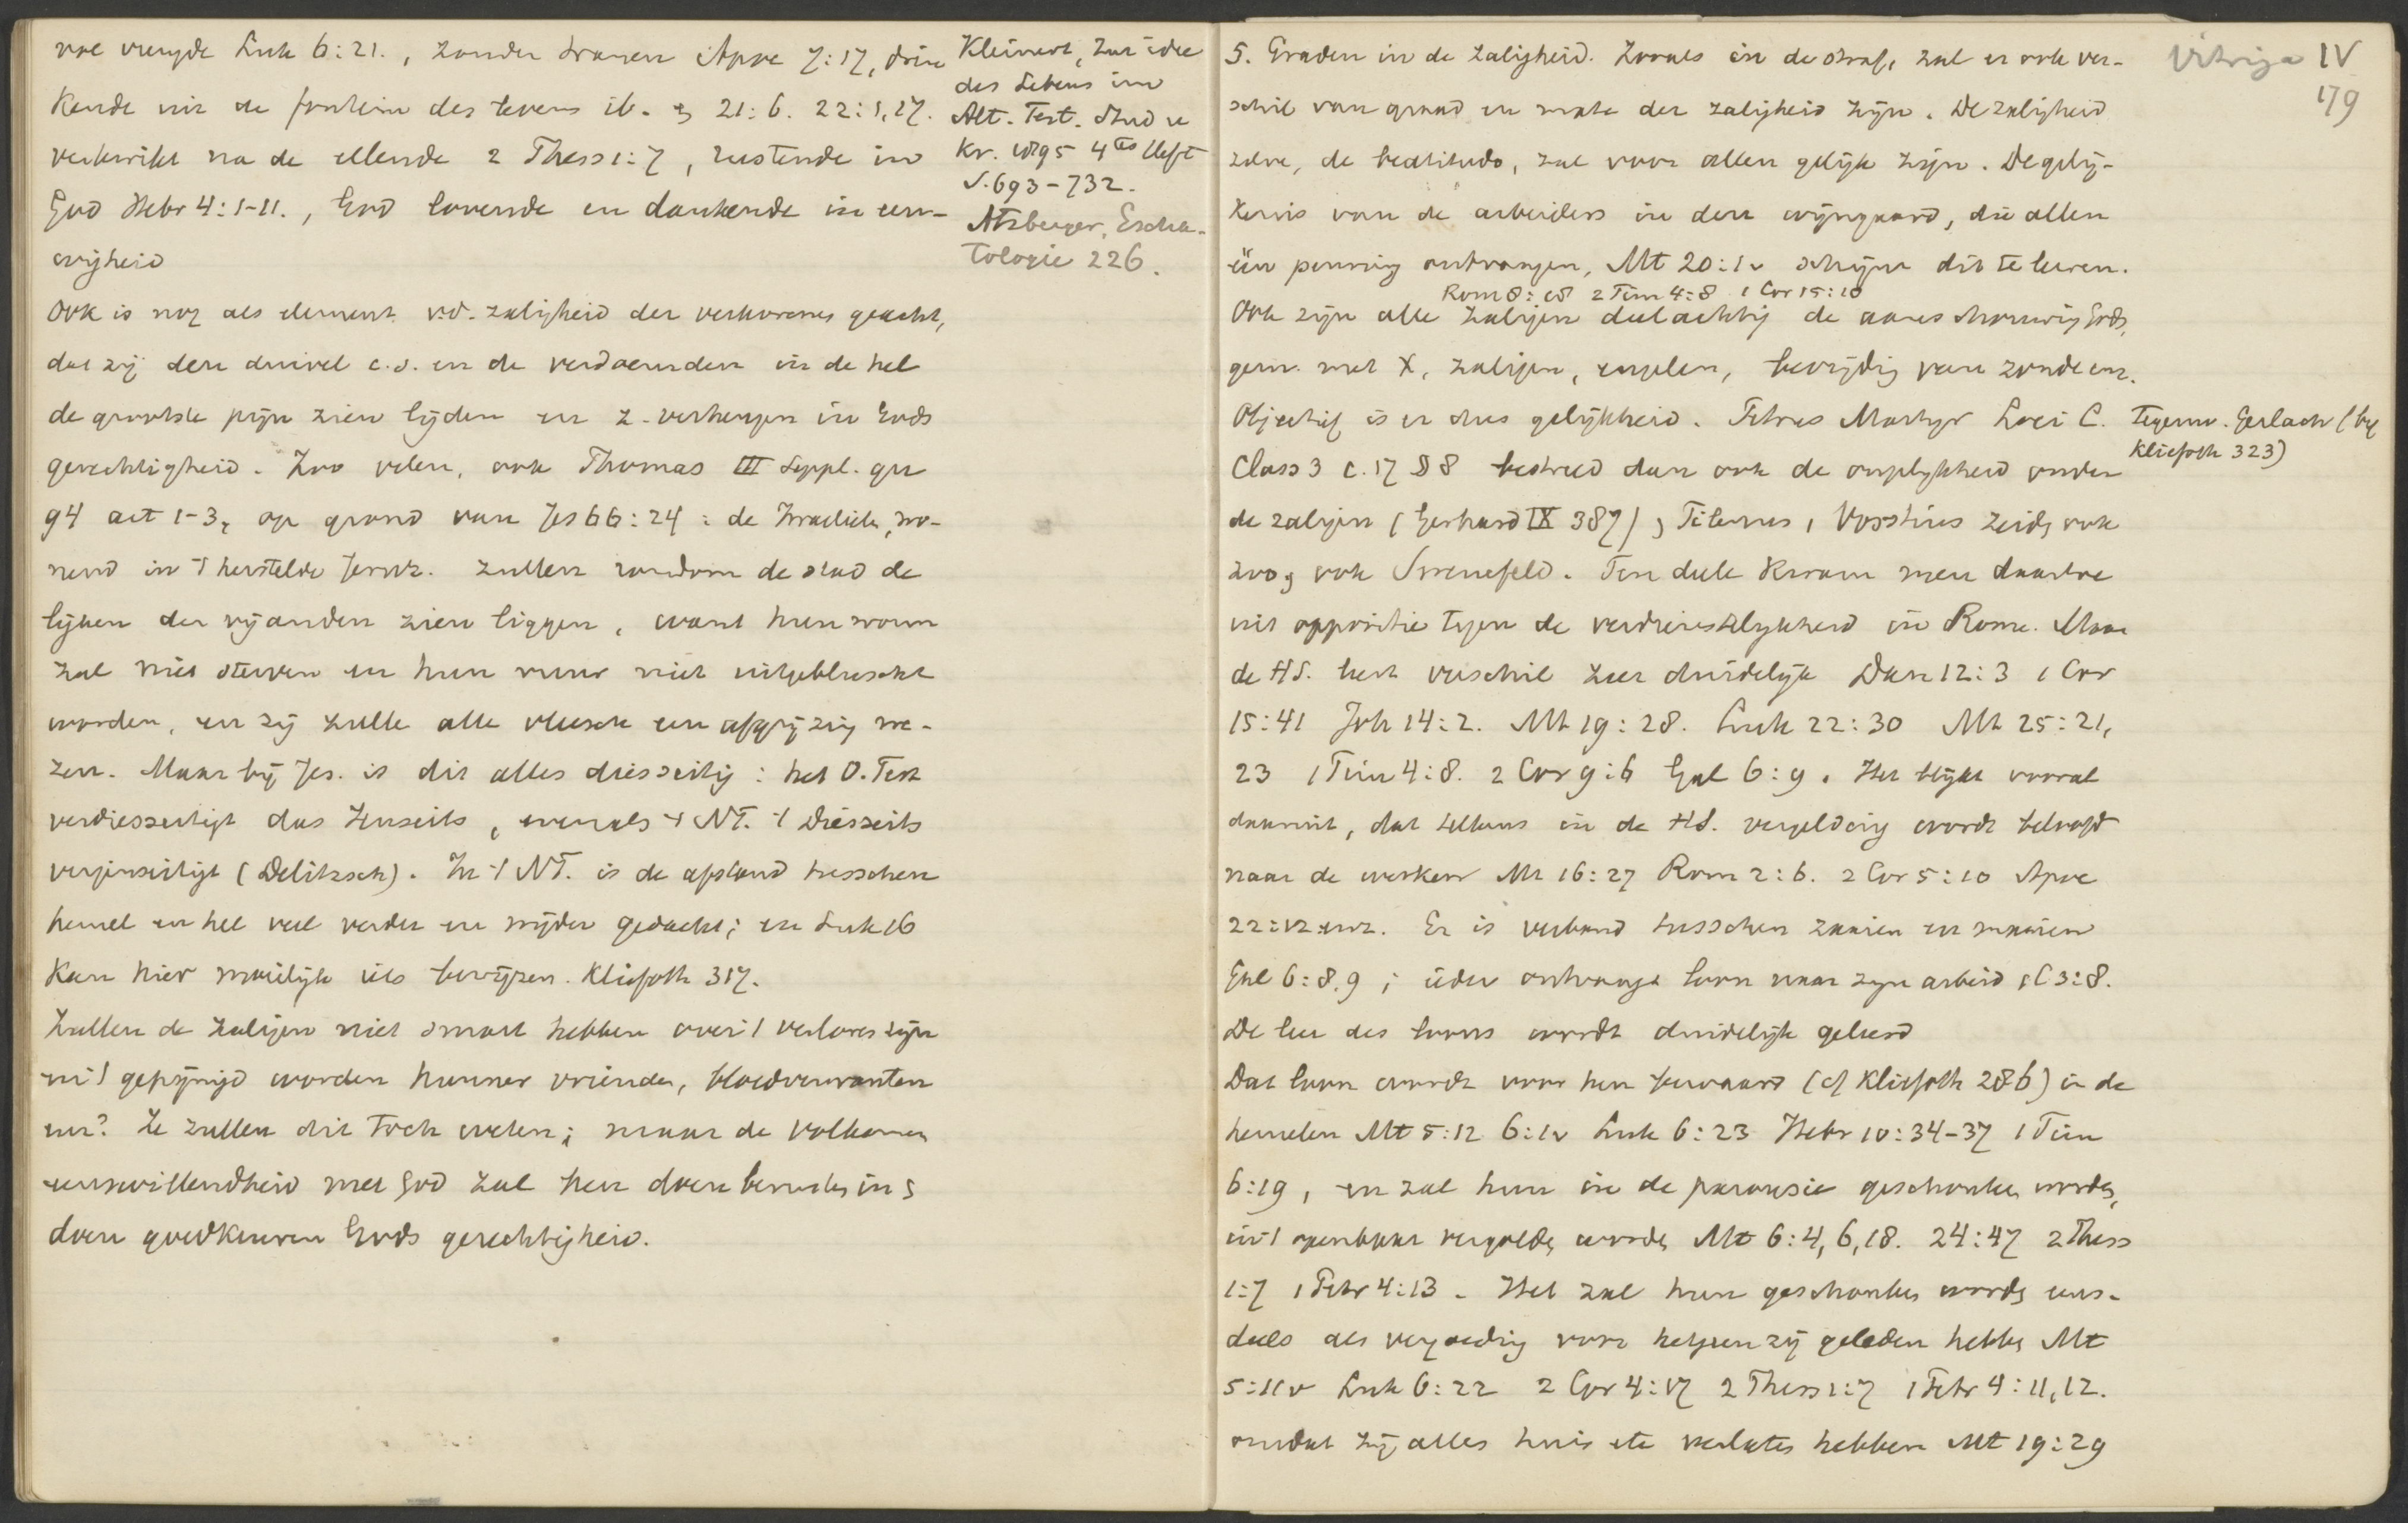 vol vreugde Luk 6:21., zonder tranen Apoc 7:17, drin
kende uit de fontein des levens ib. en 21:6. 22:1,17.
verkwikt na de ellende 2 Thess 1:7, rustende in
God Hebr 4:1-11., God lovende en dankende in eeu-
wigheid
Ook is nog als element v.d. zaligheid der verkorenen geacht,
dat zij den duivel c.s. en de verdoemden in de hel
de grootste pijn zien lijden en z. verheugen in Gods
gerechtigheid. Zoo velen, ook Thomas III Suppl. qu
94 art 1-3, op grond van Jes 66:24: de Israeliten, wo-
nend in 't herstelde Jeruz. zullen rondom de stad de
lijken der vijanden zien liggen, want hun worm
zal niet sterven en hun vuur niet uitgebluscht
worden, en zij zulle alle vleesch een afgrijzing we-
zen. Maar bij Jes. is dit alles diesseitig: het O. Test
verdiesseitigt das Jenseits, evenals 't NT. 't Diesseits
verjenseitigt (Delitzsch). In 't NT. is de afstand tusschen
hemel en hel veel verder en wijder gedacht; en Luk 16
kan hier moeilijk iets bewijzen. Kliefoth 317.
Zullen de zaligen niet smart hebben over 't verloren zijn
en 't gepijnigd worden hunner vrienden, bloedverwanten
enz? Ze zullen dit toch weten; maar de volkomen
eenswillendheid met God zal hen doen berusten in en
doen goedkeuren Gods gerechtigheid.
Kleinert, Zur idee
des Lebens im
Alt. Test. Stud u
Kr. 1895 4tes Heft
S. 693-732.
Atzberger, Escha-
tologie 226.
Vitringa IV
179
5. Graden in de zaligheid. Zooals in de straf, zal er ook ver-
schil van graad en mate der zaligheid zijn. De zaligheid
zelve, de beatitudo, zal voor allen gelijk zijn. De gelij-
kenis van de arbeiders in den wijngaard, die allen
één penning ontvangen, Mt 20:1v schijnt dit te leeren.
Rom 8:18 2 Tim 4:8 1 Cor 15:10
Ook zijn alle zaligen deelachtig de aanschouwing Gods,
gem. met X, zaligen, engelen, bevrijding van zonde enz.
Objectief is er dus gelijkheid. Petrus Martyr Loci C.
Class 3 c. 17 § 8 bestreed dan ook de ongelijkheid onder
de zaligen (Gerhard IX 387), Tilenus, Vosstius zeiden ook
zoo, ook Spanefeld. Ten deele kwam men daartoe
uit oppositie tegen de verdienstelijkheid in Rome. Maar
de HS. leert verschil zeer duidelijk Dan 12:3 1 Cor
15:41 Joh 14:2. Mt 19:28. Luk 22:30 Mt 25:21,
23 1 Tim 4:8. 2 Cor 9:6 Gal 6:9. Het blijkt vooral
daaruit, dat telkens in de HS. vergelding wordt beloofd
naar de werken Mt 16:27 Rom 2:6. 2 Cor 5:10 Apoc
22:12 enz. Er is verband tusschen zaaien en maaien
Gal 6:8,9; ieder ontvangt loon naar zijn arbeid 1 C 3:8.
De leer des loons wordt duidelijk geleerd
Dat loon wordt voor hen bewaard (cf Kliefoth 286) in de
hemelen Mt 5:12 6:1v Luk 6:23 Hebr 10:34-37 1 Tim
6:19, en zal hun in de parousie geschonken worden,
in 't openbaar vergolden worden Mt 6:4,6,18. 24:47 2 Thess
1:7 1 Petr 4:13. Het zal hun geschonken worden eens-
deels als vergoeding voor hetgeen zij geleden hebben Mt
5:11v Luk 6:22 2 Cor 4:17 2 Thess 1:7 1 Petr 4:11,12.
omdat zij alles huis etc verlaten hebben Mt 19:29
Tegenw. Gerlach (bij
Kliefoth 323)